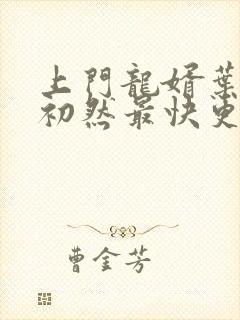 上門龍婿葉
初然最快更
曹金芳